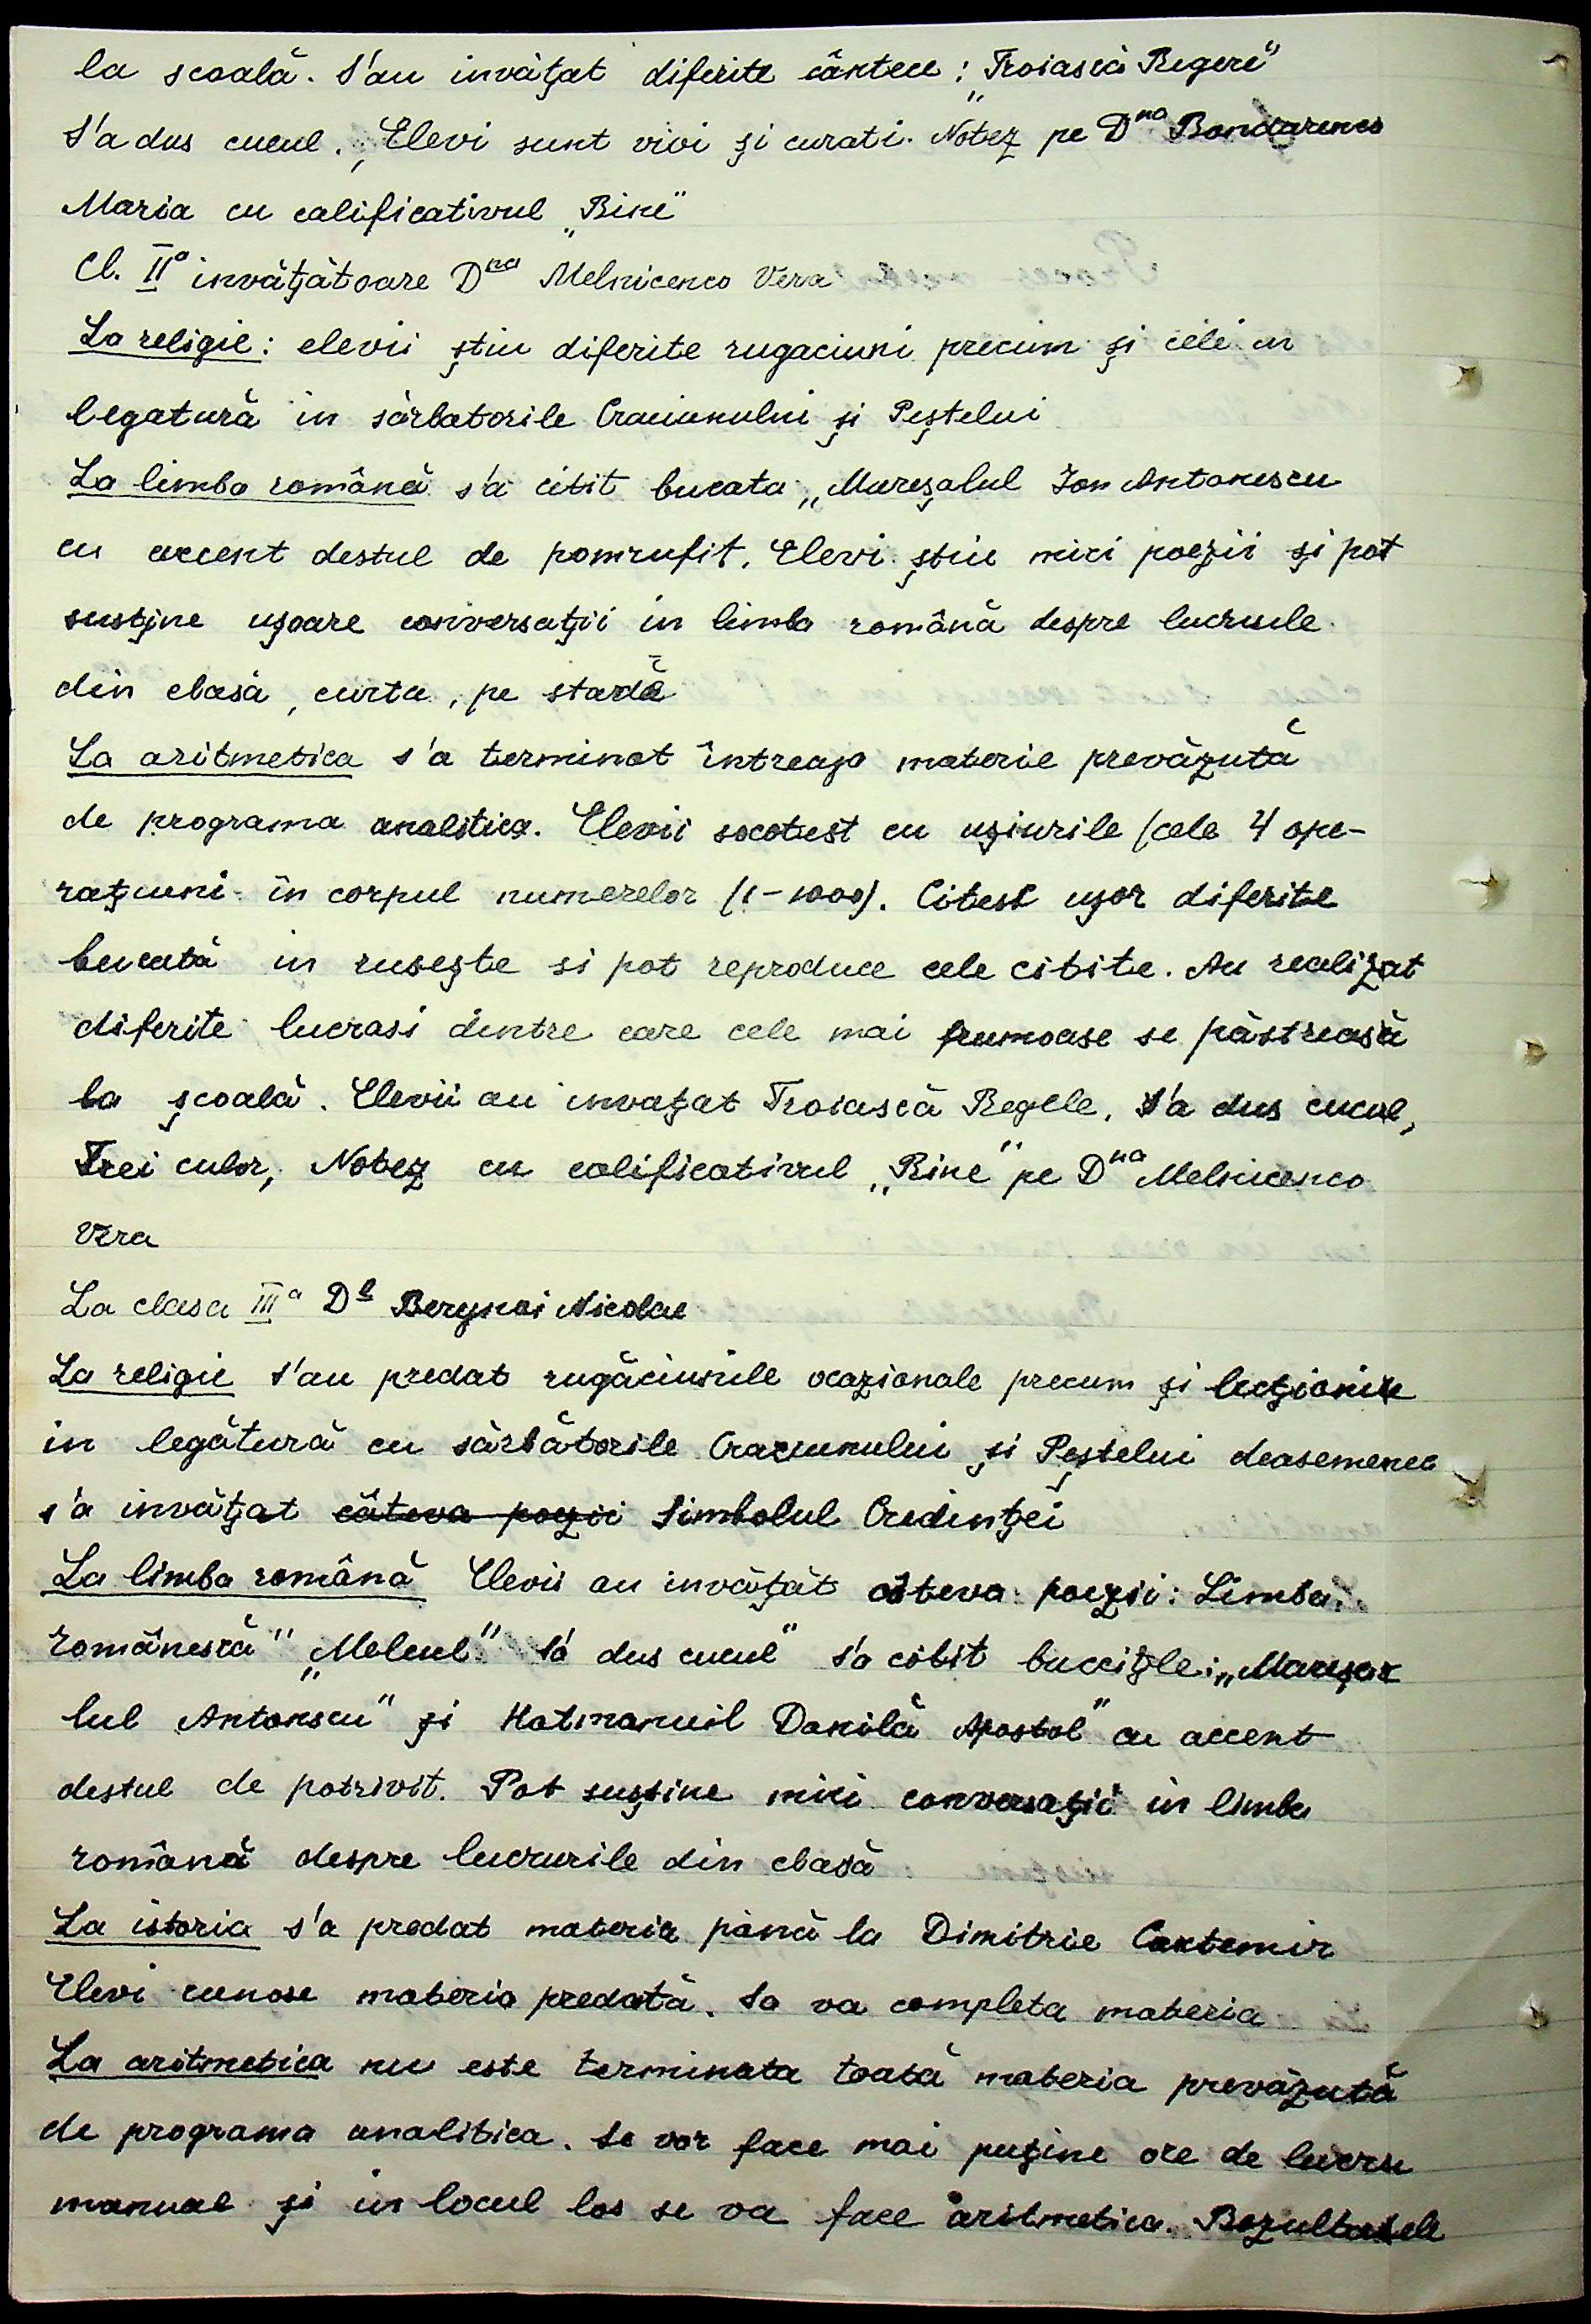 la scoală. S'au invățat diferite cântece: „Troiască Regere"
S'a dus cucul. „Elevi sunt vivi și curati. Notez pe Dna Bondarenco
Maria cu calificativul „Bine"
Cl. IIa invățătoare Dna Melnicenco Vera
La religie: elevii știu diferite rugaciuni precum și cele cu
legatură in sărbatorile Craciunului și Peștelui
La limba română s'a citit bucata „Mareșalul Ion Antonescu
cu accent destul de pomrufit. Elevi știu mici poezii și pot
susține ușoare conversații in limba română despre lucruile
din clasă, curta, pe stardă
La aritmetica s'a terminat întreaga materie prevăzută
de programa analitica. Elevii socotest cu ușiurile (cele 4 ope-
rațiuni in corpul numerelor (1-1000). Citesc ușor diferite
bucată in rusește si pot reproduce cele citite. Au realizat
diferite lucrasi dintre care cele mai frumoase se păstreasă
la școală. Elevii au invațat Troiască Regele, S'a dus cucul,
Trei culor, Notez cu calificativul „Bine" pe Dna Melnicenco
Vera
La clasa IIIa Dl Bergnoi Nicolae
La religie s'au predat rugăciunile ocazionale precum și lecționile
in legătură cu sărbătorile Craciunului și Peștelui deasemenea
s'a invățat câteva poezii Simbolul Credinței
La limba română Elevii au invățăt câteva poezii: Limba
românescă" „Melcul" S'a dus cucul" s'a citit buccițle: „Mareșa
lul Antonscu" și Hatmanuil Danilă Apostol" cu accent
destul de potrivit. Pot susține mici conversații in limba
română despre lucrurile din clasă
La istoria s'a predat materia până la Dimitrie Cantemir
Elevi cunosc materia predată. Sa va completa materia
La aritmetica nu este terminata toată materia prevăzută
de programa analitica. Se vor face mai puține ore de lucru
manual și in locul los se va face aritmetica. Rezultatele